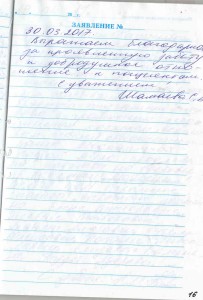 ЗАЯВЛЕНИЕ №
30.03.2017
Выражаем благодарно
за проявленную заботу
и добродушное отно
шение к пациентам.
С уважением
Шамаева С.
16